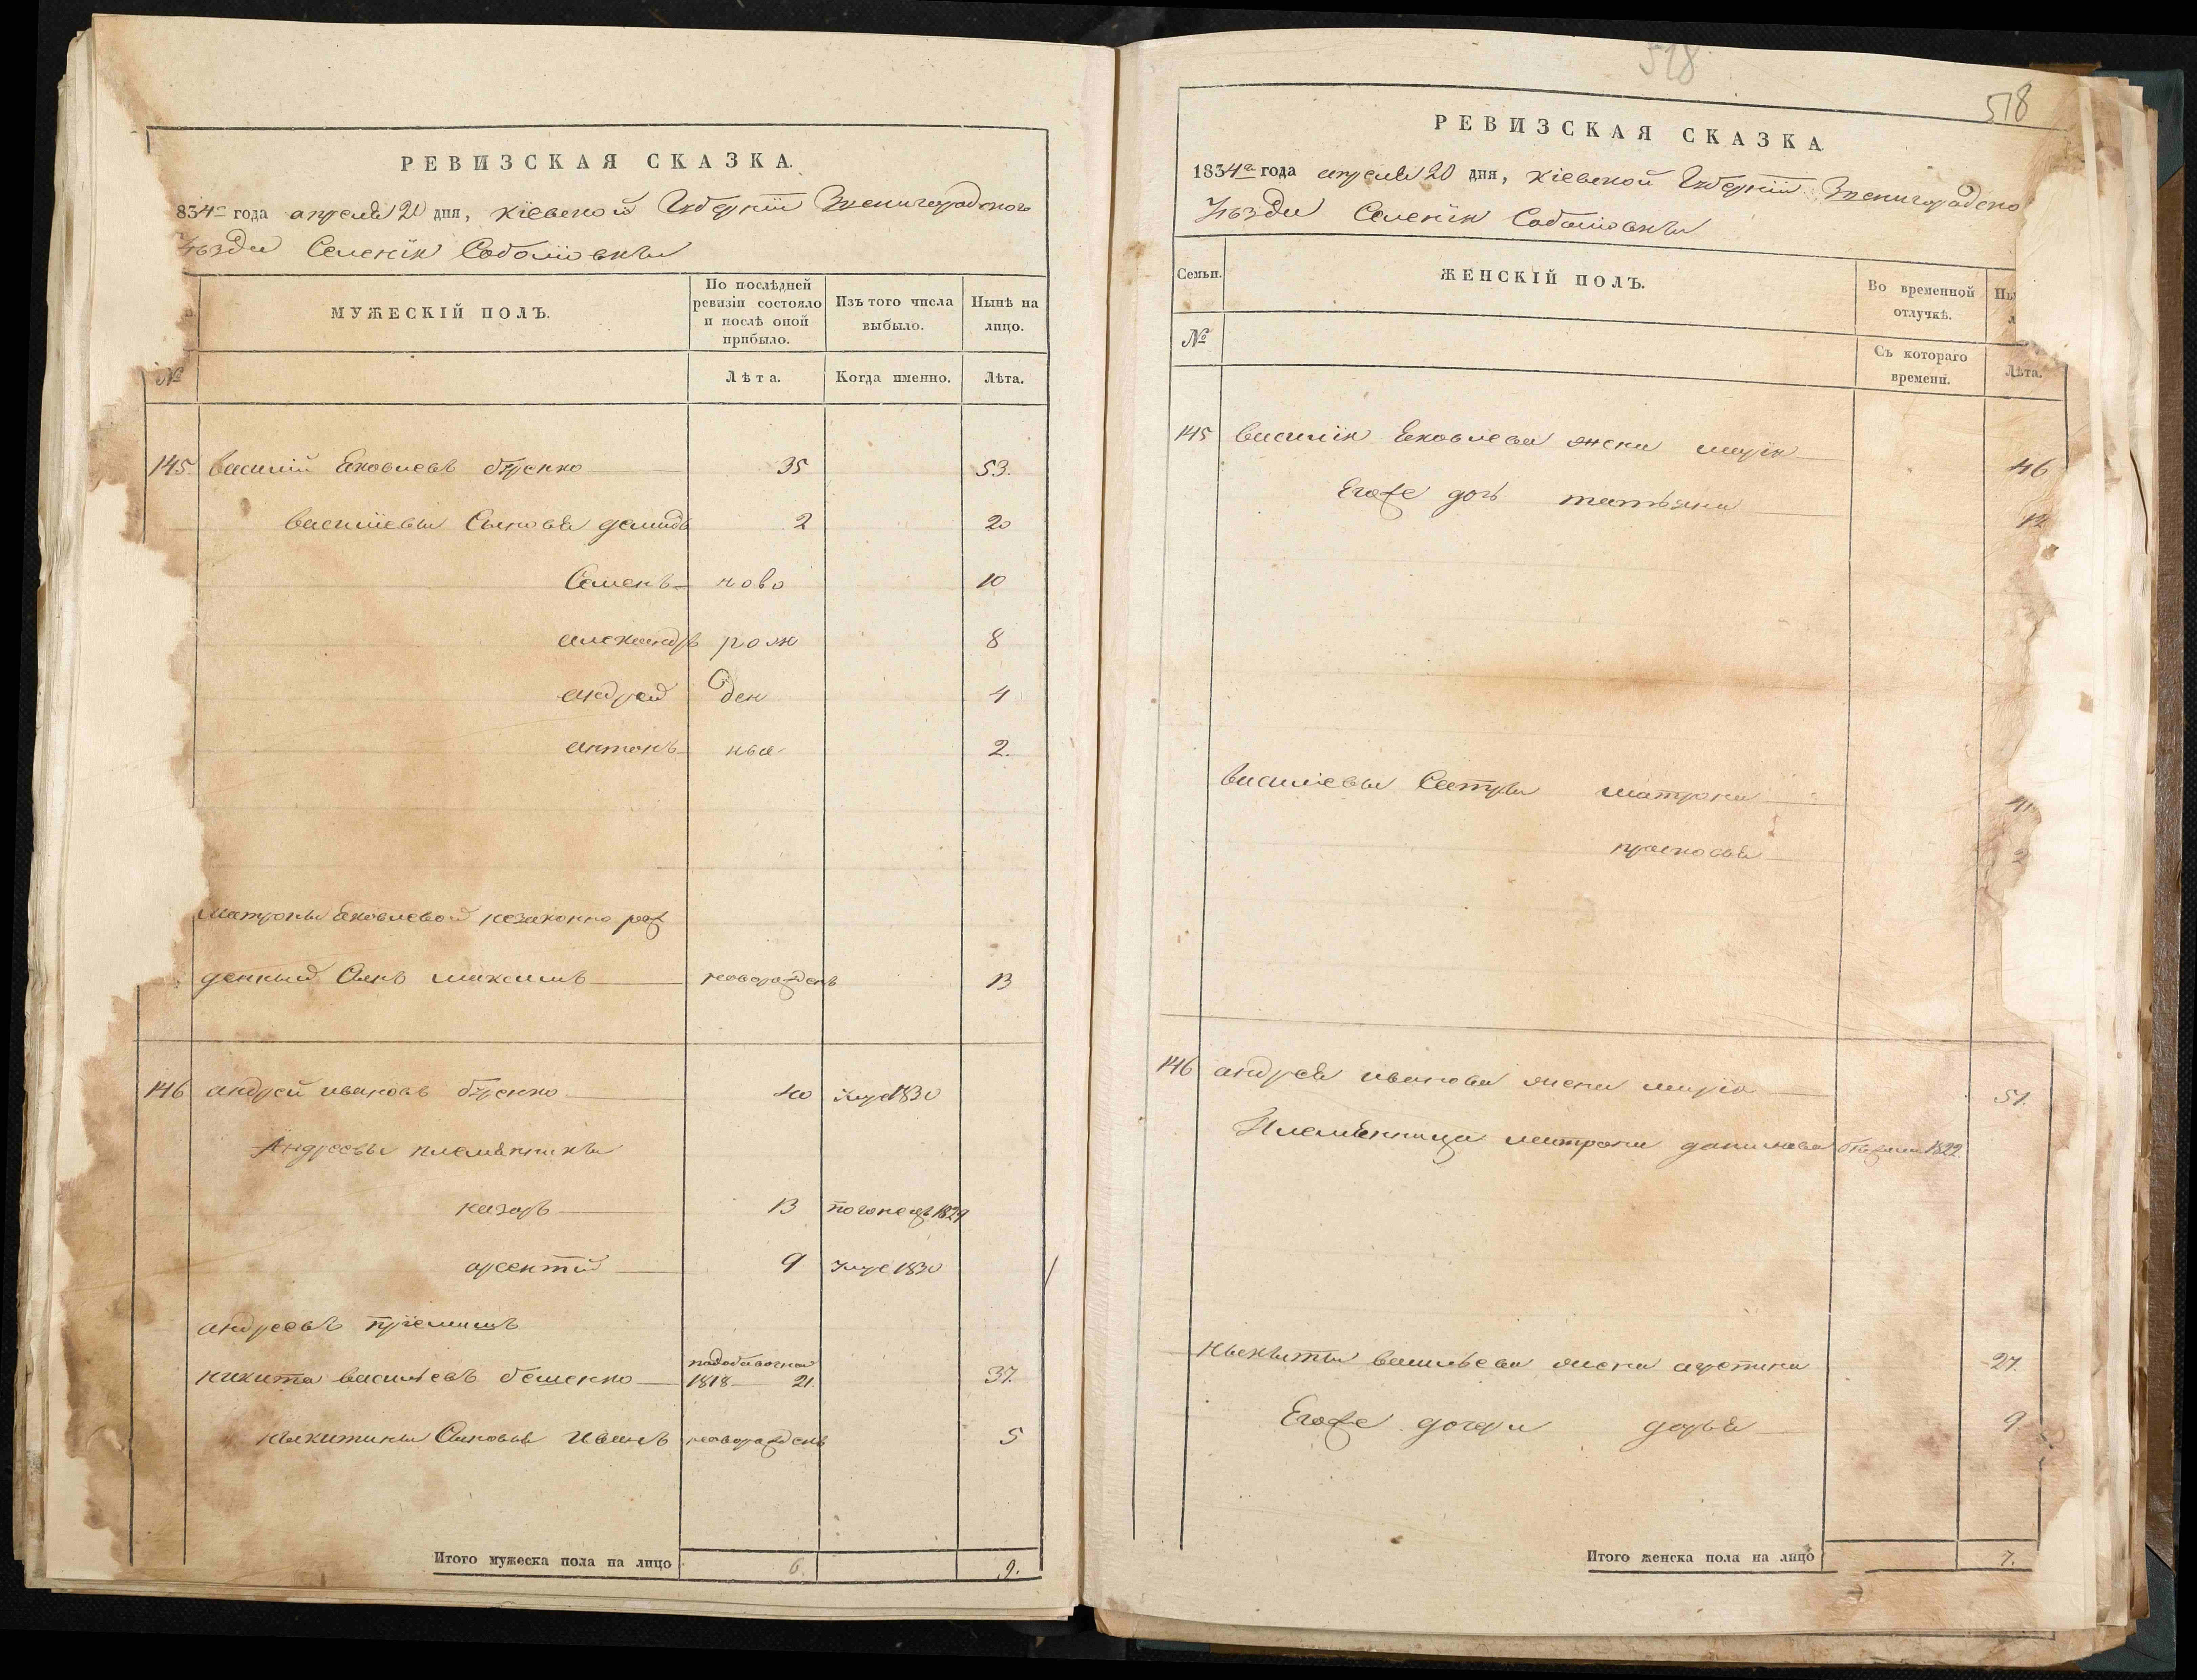 РЕВИЗСКАЯ СКАЗКА.
834го года апреля 20 дня, Кіевской Губерніи Звенигородского
Уезда Селенія Соболювки
МУЖЕСКІЙ ПОЛЪ.
По послѣдней ревизіи состояло и послѣ оной прибыло.
Изъ того числа выбыло.
Нынѣ на лицо.
№
Лѣта.
Когда именно.
Лѣта.
145. василій Яковлевъ 35 53.
василіевы Сыновья демидъ 2 20
Семенъ ново 10
александръ рож 8
андрей ден 4
антонъ ныя 2.
Матроны Яковлевой незаконно рож
денный Сынъ максимъ новорожденъ 13
146 андрей ивановъ 40 умре 1830
Андреевы племянники
назаръ 13 1829
арсентій 9 умре 1830
андреевъ пріемышъ
никита васильевъ 1818 21. 37.
никитины Сыновья иванъ новорожденъ 5
Итого мужеска пола на лицо 6. 9.
518
518
РЕВИЗСКАЯ СКАЗКА
1834го года апреля 20 дня, Кіевской Губерніи Звенигородско
Уезда Селенія Соболювки
Семьи.
ЖЕНСКІЙ ПОЛЪ.
Во временной отлучкѣ.
№
Съ котораго времени.
Лѣта.
145 василія Яковлева жена марія 46
Егоже дочь татьяна 12
василіевы Сестры матрона 41
прасковья 2
146 андрея иванова жена марія 51.
Племянница матрона данилова 1822.
Никиты васильева жена 27.
Егоже дочери дарья 9
Итого женска пола на лицо 7.